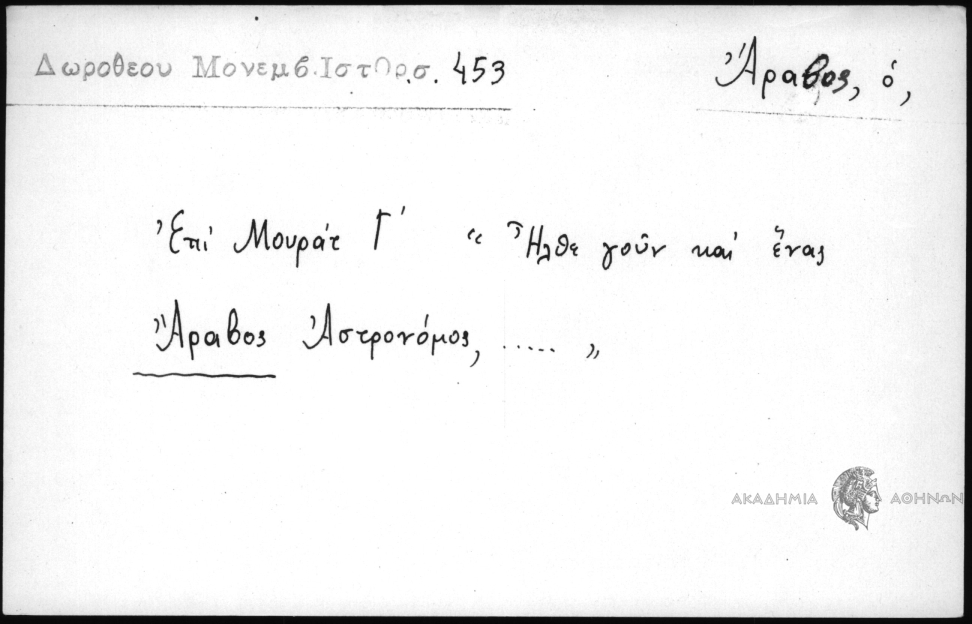 Δωροθεου Μονεμβ.Ιστορ.σ. 453
Ἄραβος, ὁ,
Ἐπί Μουράτ Γ΄ “ Ἦλθε γοῦν καί ἕνας
Ἄραβος Ἀστρονόμος, ..... „
ΑΚΑΔΗΜΙΑ ΑΘΗΝΩΝ